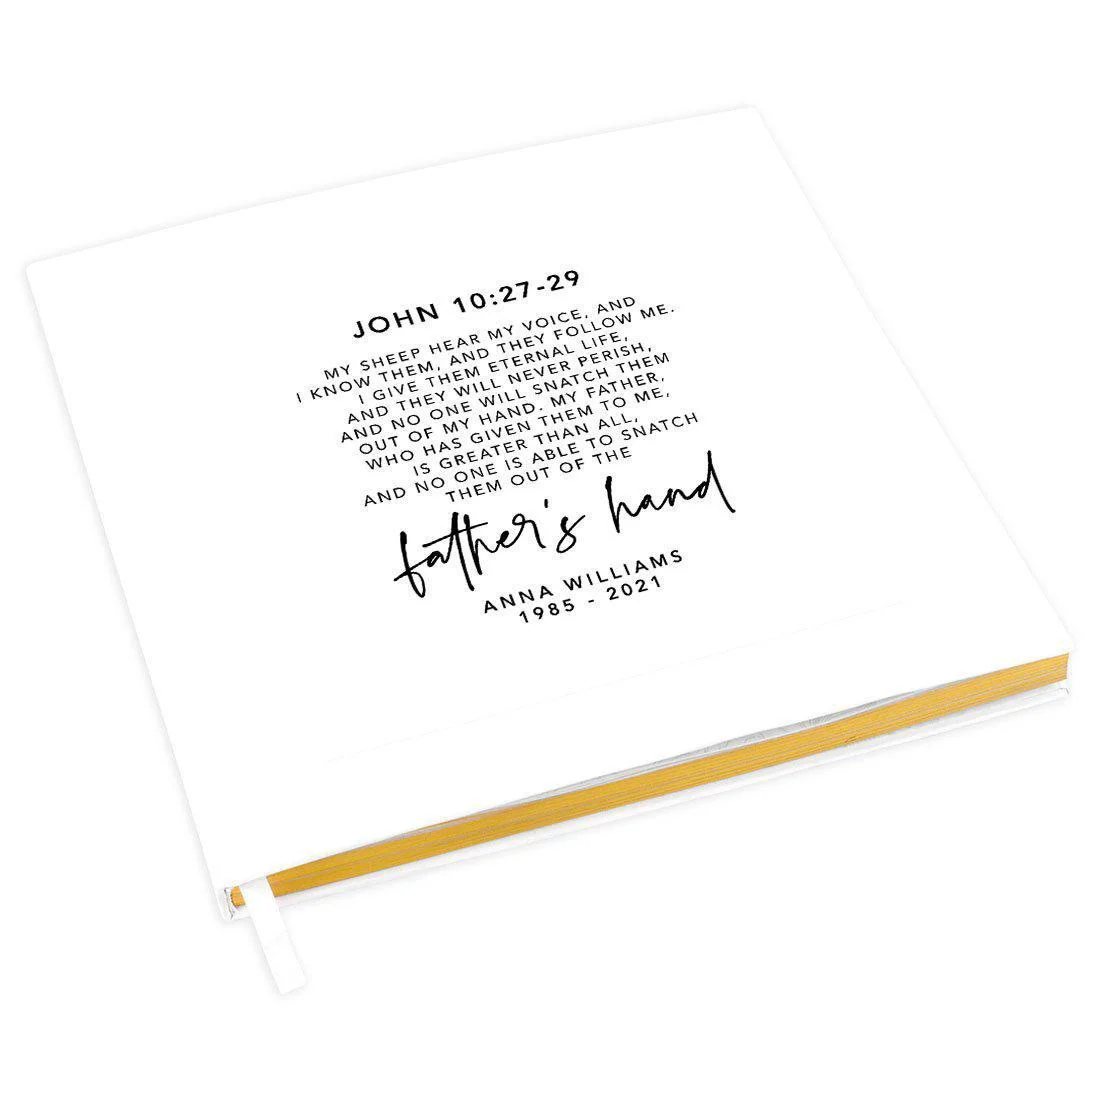 JOHN 10:27-29
MY SHEEP HEAR MY VOICE, AND
I KNOW THEM, AND THEY FOLLOW ME.
I GIVE THEM ETERNAL LIFE,
AND THEY WILL NEVER PERISH,
AND NO ONE WILL SNATCH THEM
OUT OF MY HAND. MY FATHER,
WHO HAS GIVEN THEM TO ME,
IS GREATER THAN ALL,
AND NO ONE IS ABLE TO SNATCH
THEM OUT OF THE
father's hand
ANNA WILLIAMS
1985 - 2021